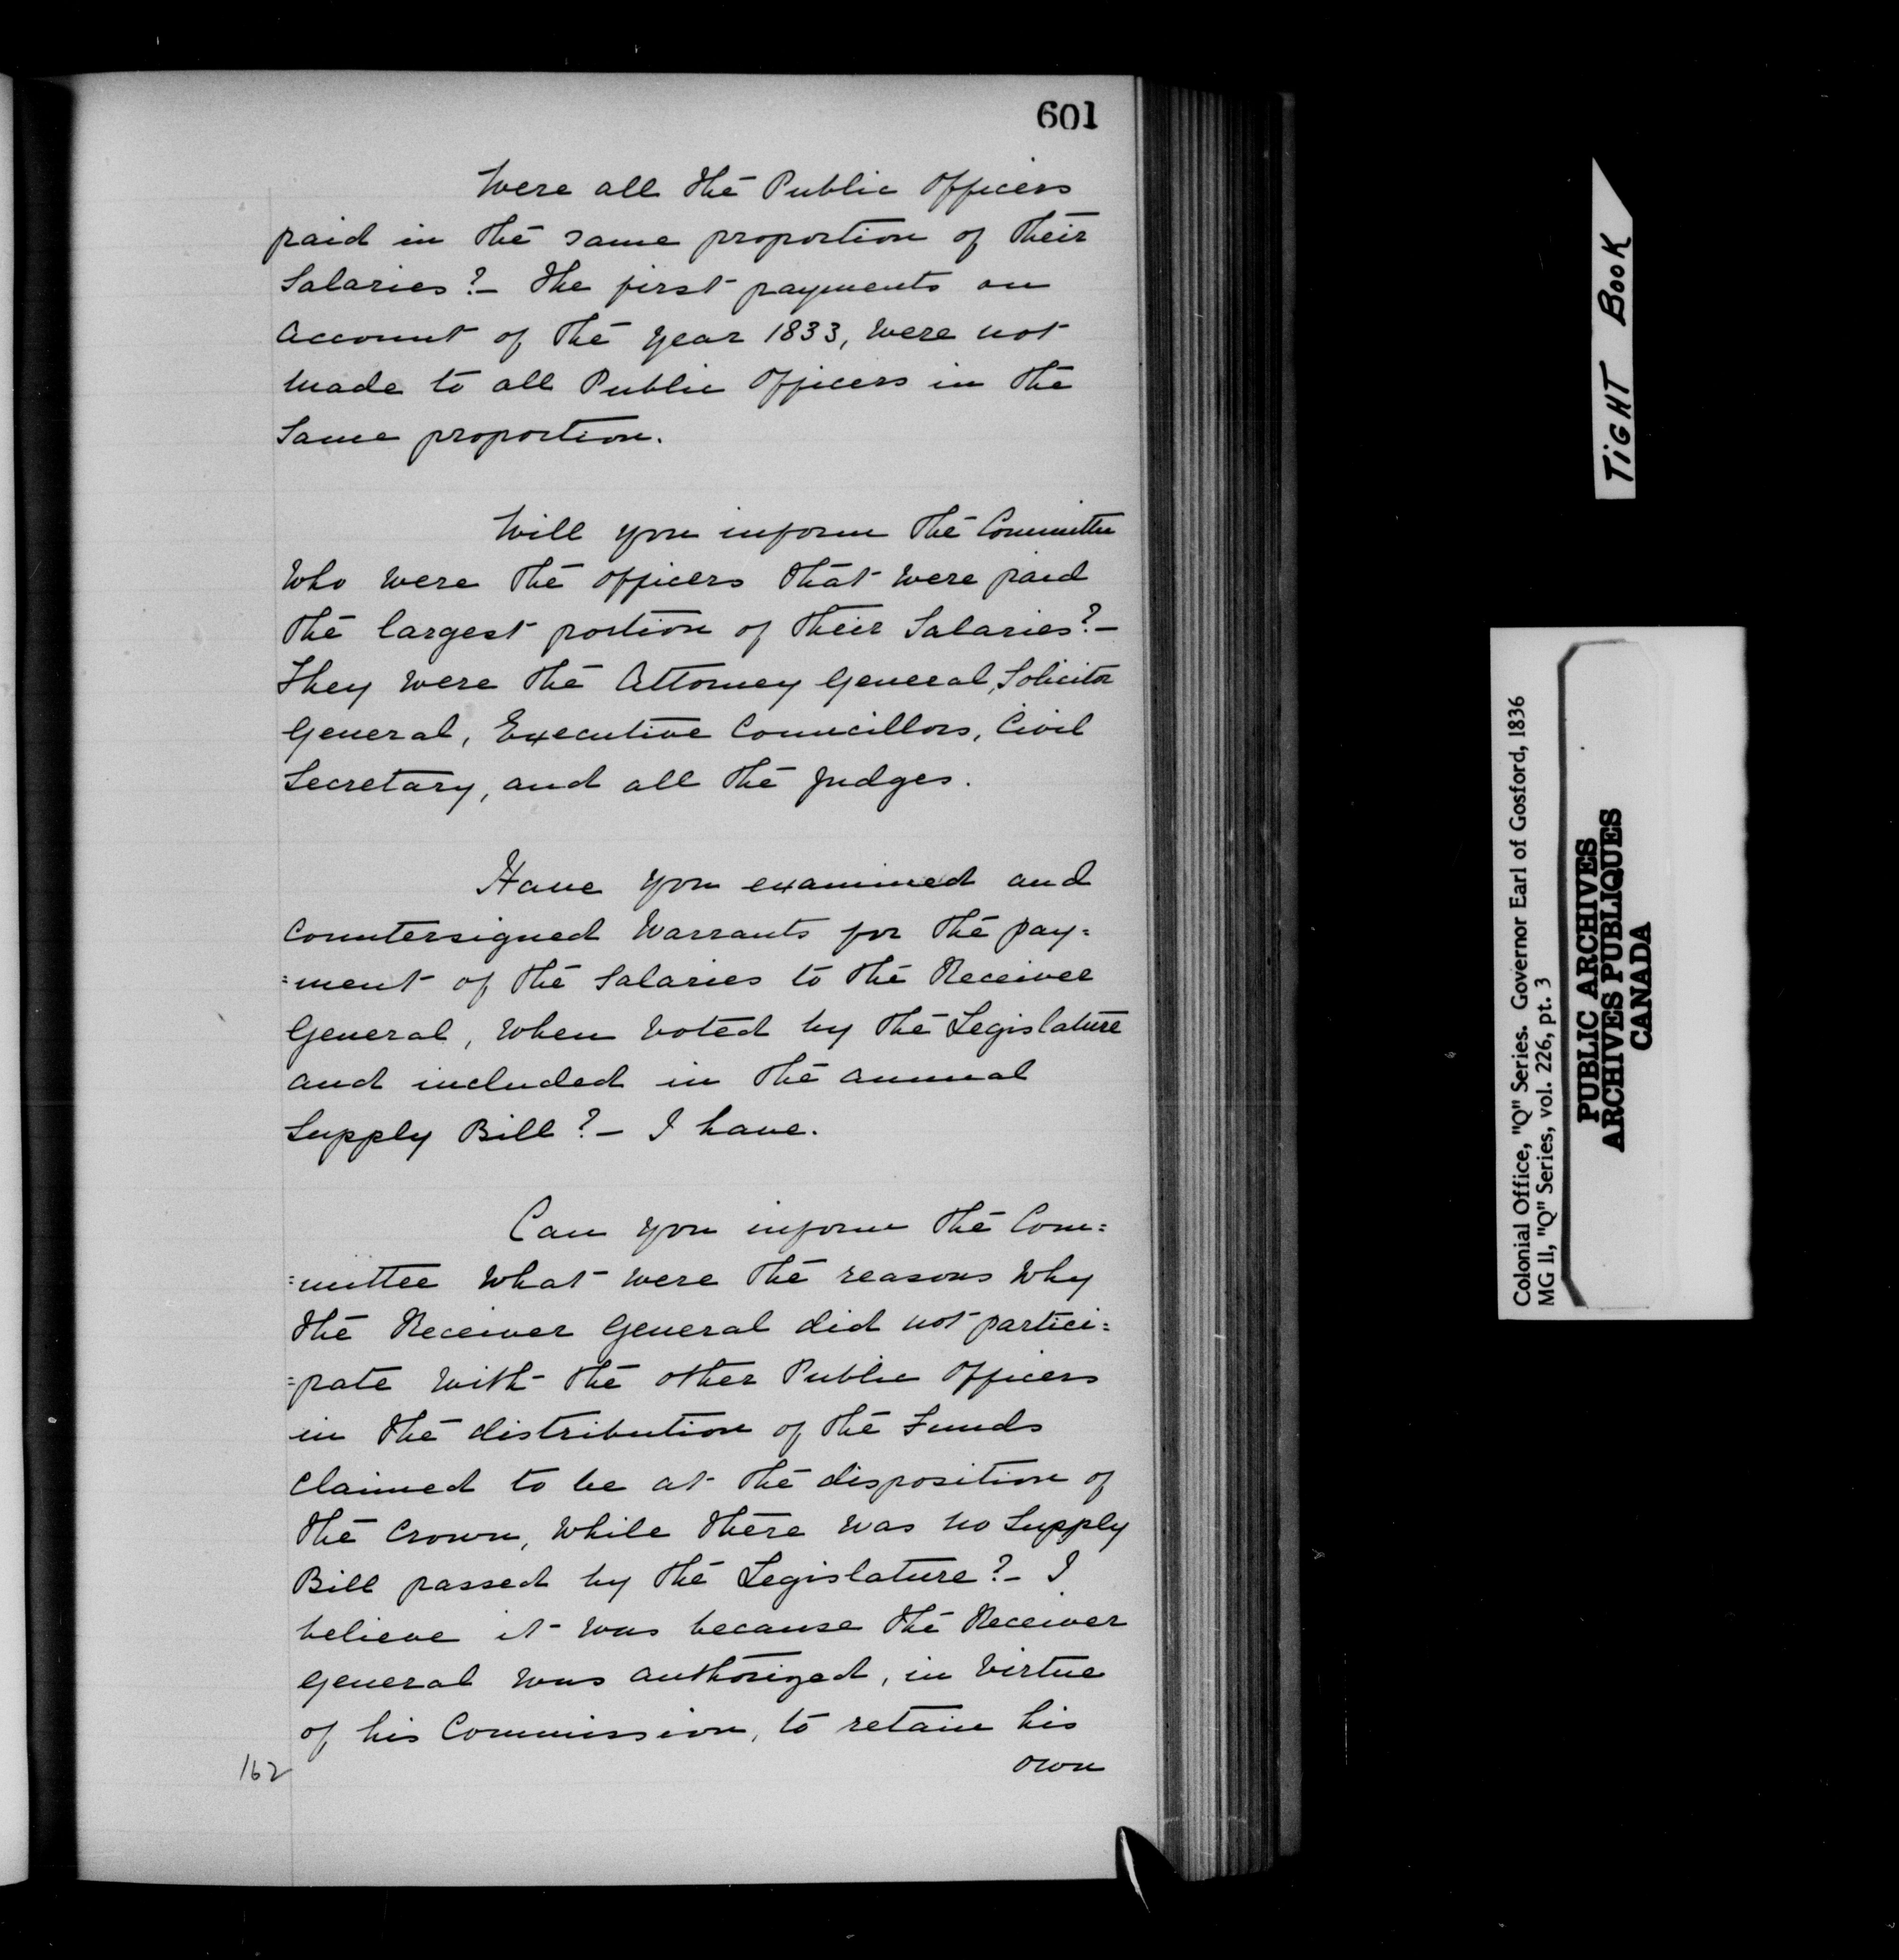 601
Were all the Public Officers
paid in the same proportion of their
Salaries?- The first payments on
account of the year 1833, were not
made to all Public Officers in the
Same proportion.
Will you inform the Committee
who were the officers that were paid
the largest portion of their Salaries?-
They were the Attorney General, Solicitor
General, Executive Councillors, Civil
Secretary, and all the Judges.
Have you examined and
Countersigned Warrants for the pay=
=ment of the Salaries to the Receiver
General, when voted by the Legislature
and included in the annual
Supply Bill?- I have.
Can you inform the Com=
=mittee what were the reasons why
the Receiver General did not partici=
=pate with the other Public Officers
in the distribution of the Funds
claimed to be at the disposition of
the Crown, while there was no Supply
Bill passed by the Legislature?- I
believe it was because the Receiver
General was authorized, in virtue
of his Commission, to retain his
own
162
TiGHT BOOK
Colonial Office, "Q" Series. Governor Earl of Gosford, 1836
MG 11, "Q" Series, vol. 226, pt. 3
PUBLIC ARCHIVES
ARCHIVES PUBLIQUES
CANADA